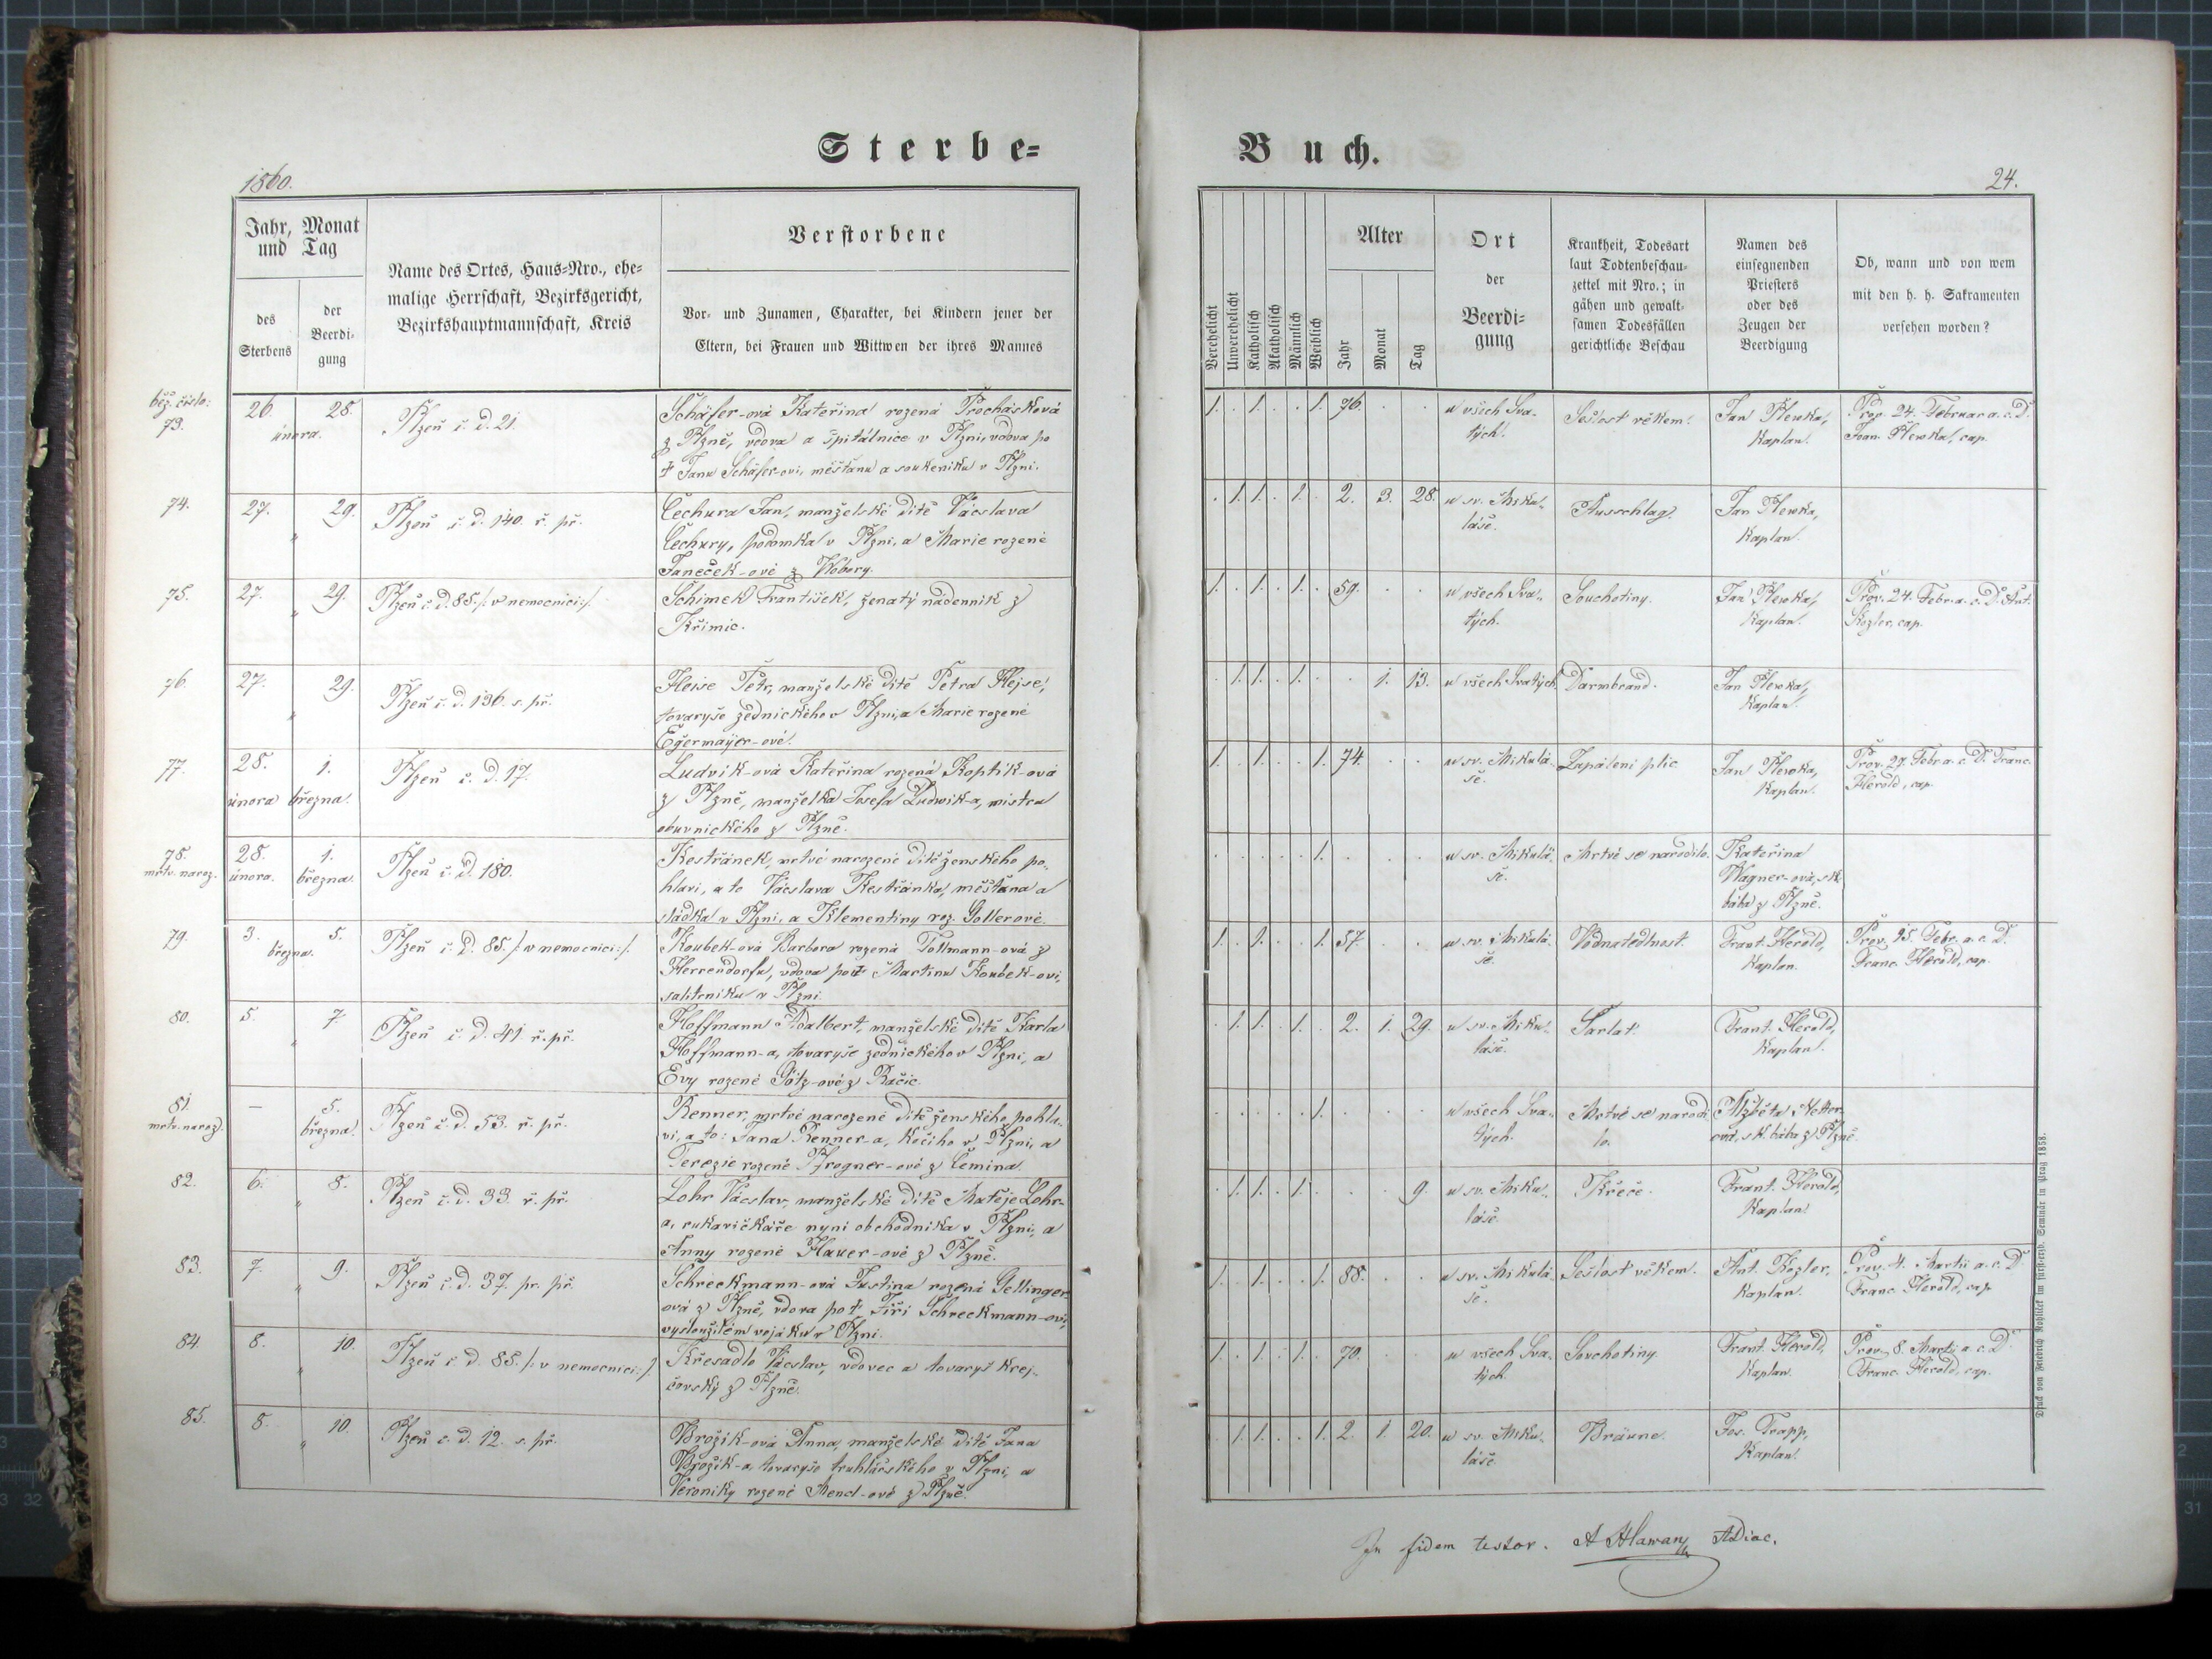 Sterbe=
Buch.
1860.
24.
Jahr, Monat
und Tag
des
Sterbens
der
Beerdi=
gung
Name des Ortes, Haus=Nro., ehe=
malige Herrschaft, Bezirksgericht,
Bezirkshauptmannschaft, Kreis
Verstorbene
Vor= und Zunamen, Charakter, bei Kindern jener der
Eltern, bei Frauen und Wittwen der ihres Mannes
Verehelicht
Unverehelicht
Katholisch
Akatholisch
Männlich
Weiblich
Alter
Jahr
Monat
Tag
Ort
der
Beerdi=
gung
Krankheit, Todesart
laut Todtenbeschau=
zettel mit Nro.; in
gähen und gewalt=
samen Todesfällen
gerichtliche Beschau
Namen des
einsegnenden
Priesters
oder des
Zeugen der
Beerdigung
Ob, wann und von wem
mit den h. h. Sakramenten
versehen worden?
běž. číslo:
73.
26. 28.
února.
Plzeň č. d. 21.
Schäfer-ová Kateřina rozená Procházková
z Plzně, vdova a špitálnice v Plzni, vdova po
† Janu Schäfer-ovi, měšťanu a soukeníku v Plzni.
1. . 1. . . 1. 76. . .
u všech Sva-
tých.
Sešlost věkem.
Jan Plewka,
kaplan.
Prov. 24. Februar a. c. D.
Joan. Plewka, cap.
74.
27. „ 29.
Plzeň č. d. 140. ř. př.
Čechura Jan, manželské dítě Václava
Čechury, podomka v Plzni, a Marie rozené
Janeček-ové z Wobory.
. 1. 1. . 1. . 2. 3. 28.
u sv. Miku-
láše.
Ausschlag.
Jan Plewka,
kaplan.
75.
27. „ 29.
Plzeň č. d. 85. /: v nemocnici :/.
Schimek František, ženatý nádenník z
Křimic.
1. . 1. . 1. . 59. . .
u všech Sva-
tých.
Souchotiny.
Jan Plewka,
kaplan.
Prov. 24. Febr. a. c. D. Ant.
Kozler, cap.
76.
27. „ 29.
Plzeň č. d. 196. s. př.
Hejse Petr, manželské dítě Petra Hejse,
tovaryše zednického v Plzni, a Marie rozené
Egermayer-ové.
. 1. 1. . 1. . . 1. 13.
u všech Svatých
Darmbrand.
Jan Plewka,
kaplan.
77.
28. 1.
února března.
Plzeň č. d. 17.
Ludvik-ová Kateřina rozená Koptik-ová
z Plzně, manželka Josefa Ludwik-a, mistra
obuvnického z Plzně.
1. . 1. . . 1. 74. . .
u sv. Mikulá-
še.
Zapálení plic
Jan Plewka,
kaplan.
Prov. 27. Febr. a. c. D. Franc.
Herold, cap.
78.
mrtv. naroz.
28. 1.
února. března.
Plzeň č. d. 180.
Kestřánek, mrtvé narozené dítě ženského po-
hlaví, a to Václava Kestřánka, měšťana a
sládka v Plzni, a Klementiny roz. Gollerové
. . . . . 1. . . .
u sv. Mikulá-
še.
Mrtvé se narodilo.
Kateřina
Wagner-ová, sk.
bába z Plzně.
79.
3. 5.
března.
Plzeň č. d. 85. /: v nemocnici :/.
Koubek-ová Barbora rozená Tollmann-ová z
Herrendorfu, vdova po † Martinu Koubek-ovi,
salitrníku v Plzni.
1. . 1. . . 1. 57. . .
u sv. Mikulá-
še.
Vodnatedlnost.
Frant. Herold,
kaplan.
Prov. 15. Febr. a. c. D.
Franc. Herold, cap.
80.
5. „ 7
Plzeň č. d. 41. ř. př.
Hoffmann Adalbert, manželské dítě Karla
Hoffmann-a, tovaryše zednického v Plzni, a
Evy rozené Götz-ové z Račic.
. 1. 1. . 1. . 2. 1. 29.
u sv. Miku-
láše.
Šarlat.
Frant. Herold,
kaplan.
81.
mrtv. naroz.
— 5.
března.
Plzeň č. d. 53. ř. př.
Renner, mrtvé narozené dítě ženského pohla-
ví, a to: Jana Renner-a, kočího v Plzni, a
Terezie rozené Pfrogner-ové z Čemína.
. . . . . 1. . . .
u všech Sva-
tých.
Mrtvé se narodi-
lo.
Alžběta Netter-
ová, sk. bába z Plzně.
82.
6. „ 8.
Plzeň č. d. 33. ř. př.
Lohr Václav, manželské dítě Matěje Lohr-
a, rukavičkáře nyní obchodníka v Plzni, a
Anny rozené Hauer-ové z Plzně.
. 1. 1. . 1. . . . 9.
u sv. Miku-
láše.
Křeče.
Frant. Herold,
kaplan.
83.
7. „ 9.
Plzeň č. d. 37. pr. př.
Schreckmann-ová Justina rozená Gellinger-
ová z Plzně, vdova po † Jiří Schreckmann-ovi,
vysloužilém vojáku v Plzni.
1. . 1. . . 1. 88. . .
u sv. Mikulá-
še.
Sešlost věkem.
Ant. Kozler,
kaplan.
Prov. 4. Martii a. c. D.
Franc. Herold, cap.
84.
8. „ 10.
Plzeň č. d. 85. /: v nemocnici :/.
Křesadlo Václav, vdovec a tovaryš krej-
čovský z Plzně.
1. . 1. . 1. . 70. . .
u všech Sva-
tých.
Souchotiny.
Frant. Herold,
kaplan.
Prov. 8. Martii a. c. D.
Franc. Herold, cap.
85.
8. „ 10.
Plzeň č. d. 12. s. př.
Brožík-ová Anna, manželské dítě Jana
Brožík-a, tovaryše truhlářského v Plzni, a
Veroniky rozené Mencl-ové z Plzně.
. 1. 1. . . 1. 2. 1. 20.
u sv. Miku-
láše.
Bräune.
Jos. Trapp,
kaplan.
In fidem testor. A Hlawan ADiac.
Druck von Friedrich Rohliček im fürsterzb. Seminär in Prag 1858.